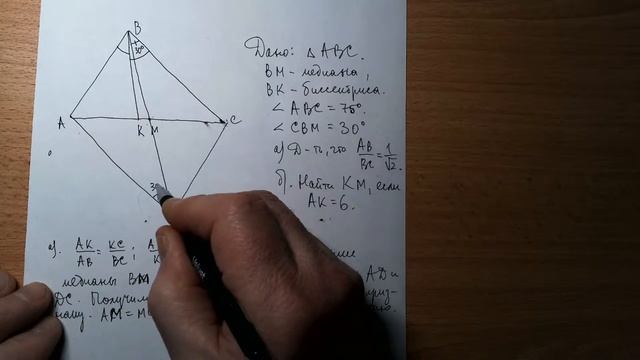 B
30°
A
K
M
C
3
Дано: △ABC.
BM - медиана,
BK - биссектриса.
∠ABC = 75°
∠CBM = 30°
а) Д-ть, что AB/BC = 1/√2.
б). Найти KM, если
AK = 6.
а). AK/AB = KC/BC; A
медианы BM AD и
DC. Получим
наку. AM = M